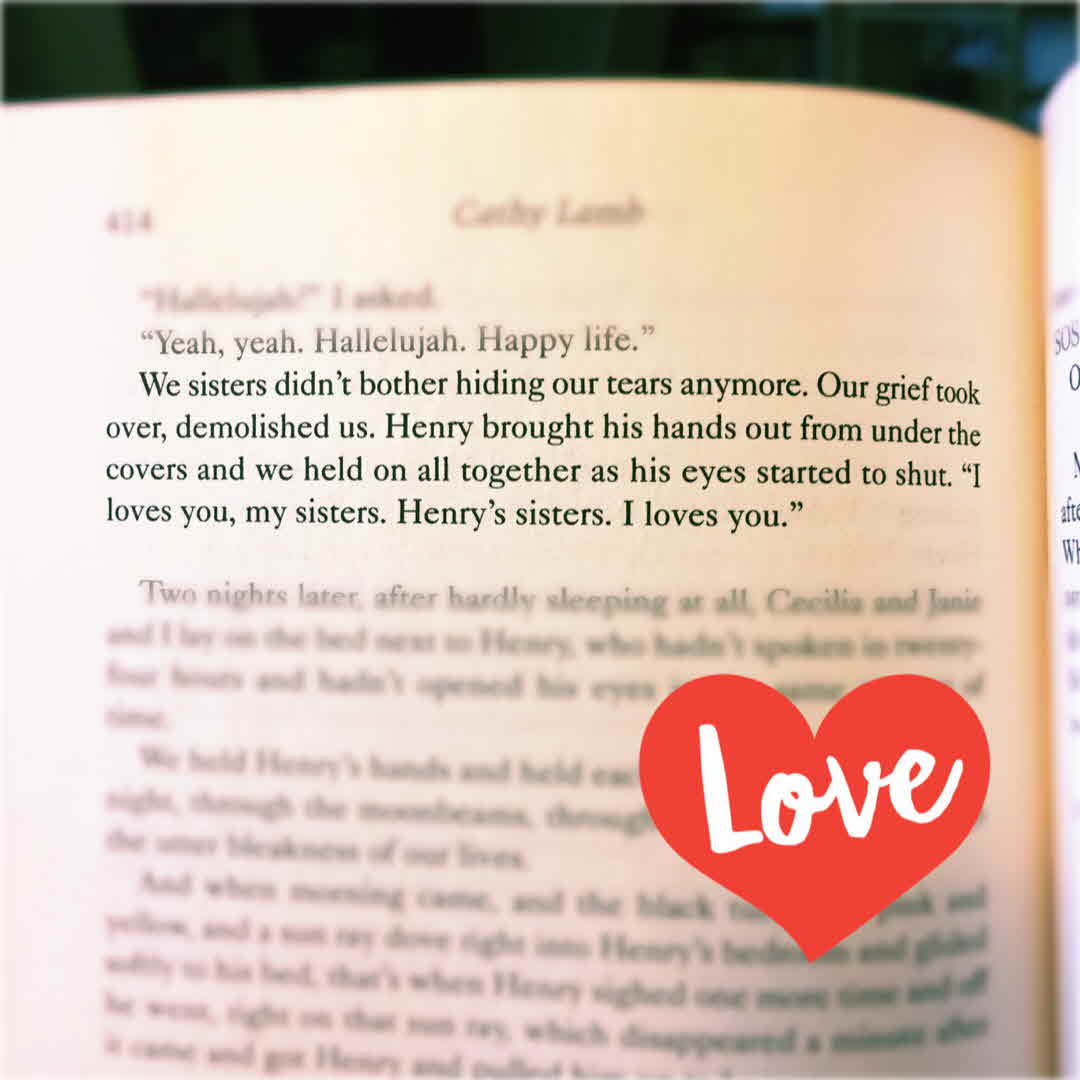 414
Cathy Lamb
“Hallelujah?” I asked.
“Yeah, yeah. Hallelujah. Happy life.”
We sisters didn’t bother hiding our tears anymore. Our grief took
over, demolished us. Henry brought his hands out from under the
covers and we held on all together as his eyes started to shut. “I
loves you, my sisters. Henry’s sisters. I loves you.”
Two nights later, after hardly sleeping at all, Cecilia and Janie
and I lay on the bed next to Henry, who hadn’t spoken in twenty-
four hours and hadn’t opened his eyes of
time.
We held Henry’s hands and held
night, through the moonbeams,
the utter bleakness of our lives.
And when morning came, and the black and
yellow, and a sun ray dove right into Henry’s and glided
softly to his bed, that’s when Henry sighed one more time and off
he went, right on that sun ray, which disappeared a minute after
it came and got Henry and pulled him
Love
SOS
O
afte
Wh